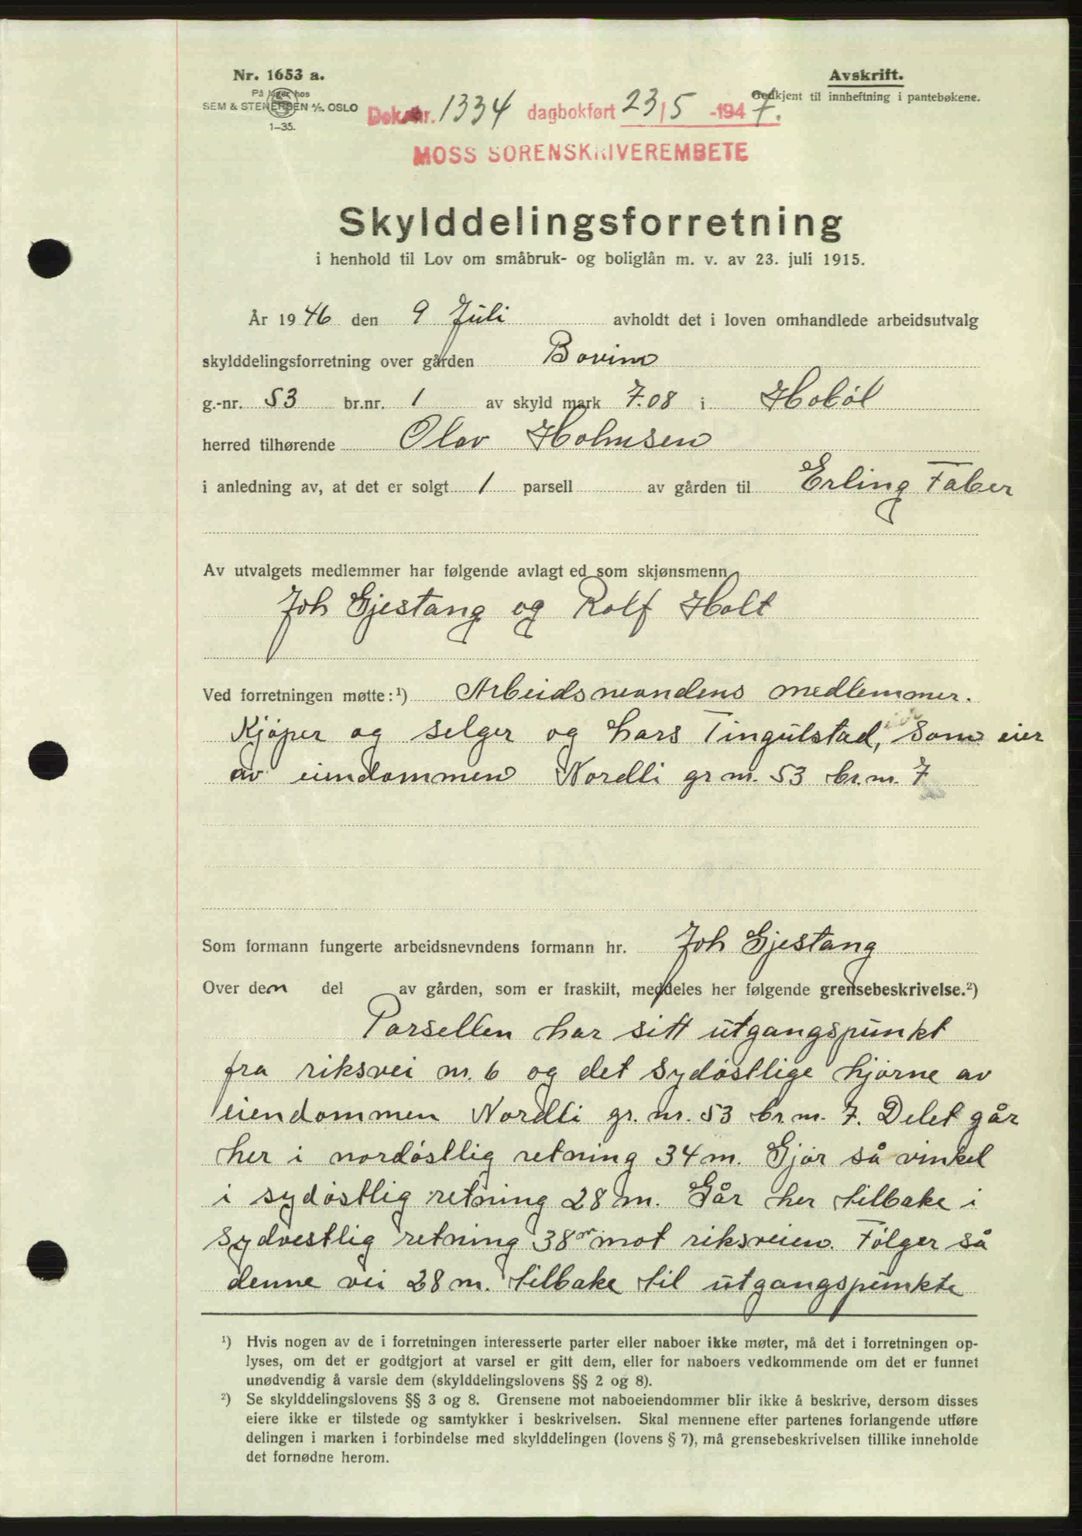 Nr. 1653 a.
På lager hos
SEM & STENERSEN A/S. OSLO
1-35.
Avskrift.
Godkjent til innheftning i pantebøkene.
Dok.nr. 1334 dagbokført 23/5 -1947.
MOSS SORENSKRIVEREMBETE
Skylddelingsforretning
i henhold til Lov om småbruk- og boliglån m. v. av 23. juli 1915.
År 1946 den 9 Juli avholdt det i loven omhandlede arbeidsutvalg
skylddelingsforretning over gården Bovim
g.-nr. 53 br.nr. 1 av skyld mark 7.08 i Hobøl
herred tilhørende Olav Holmsen
i anledning av, at det er solgt 1 parsell av gården til Erling Faber
Av utvalgets medlemmer har følgende avlagt ed som skjønsmenn
Joh Gjestang og Rolf Holt
Ved forretningen møtte:¹) Arbeidsnevndens medlemmer.
Kjøper og selger og Lars Tingulstad, som eier
av eiendommen Nordli gr nr. 53 br. nr. 7
Som formann fungerte arbeidsnevndens formann hr. Joh Gjestang
Over den del av gården, som er fraskilt, meddeles her følgende grensebeskrivelse.²)
Parsellen har sitt utgangspunkt
fra riksvei nr. 6 og det sydøstlige hjørne av
eiendommen Nordli gr. nr. 53 br nr. 7. Delet går
her i nordøstlig retning 34 m. Gjør så vinkel
i sydøstlig retning 28 m. Går her tilbake i
sydvestlig retning 38 m mot riksveien. Følger så
denne vei 28 m. tilbake til utgangspunkte
¹) Hvis nogen av de i forretningen interesserte parter eller naboer ikke møter, må det i forretningen op-
lyses, om det er godtgjort at varsel er gitt dem, eller for naboers vedkommende om det er funnet
unødvendig å varsle dem (skylddelingslovens §§ 2 og 8).
²) Se skylddelingslovens §§ 3 og 8. Grensene mot naboeiendommer blir ikke å beskrive, dersom disses
eiere ikke er tilstede og samtykker i beskrivelsen. Skal mennene efter partenes forlangende utføre
delingen i marken i forbindelse med skylddelingen (lovens § 7), må grensebeskrivelsen tillike inneholde
det fornødne herom.